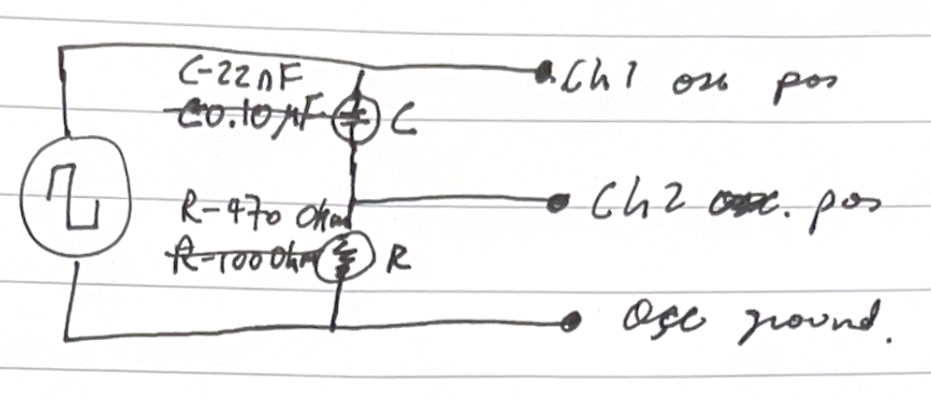 C-22nF
C0.10μF
C
Ch1 osc pos
R-470 Ohm
R-100 Ohm
R
Ch2 osc. pos
Osc ground.